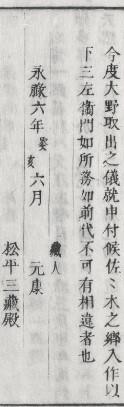 今度大野取出之儀就申付候佐々木之郷入作以
下三左衞門如所務如前代不可有相違者也
永祿六年癸亥六月
藏人
元康
松平三藏殿